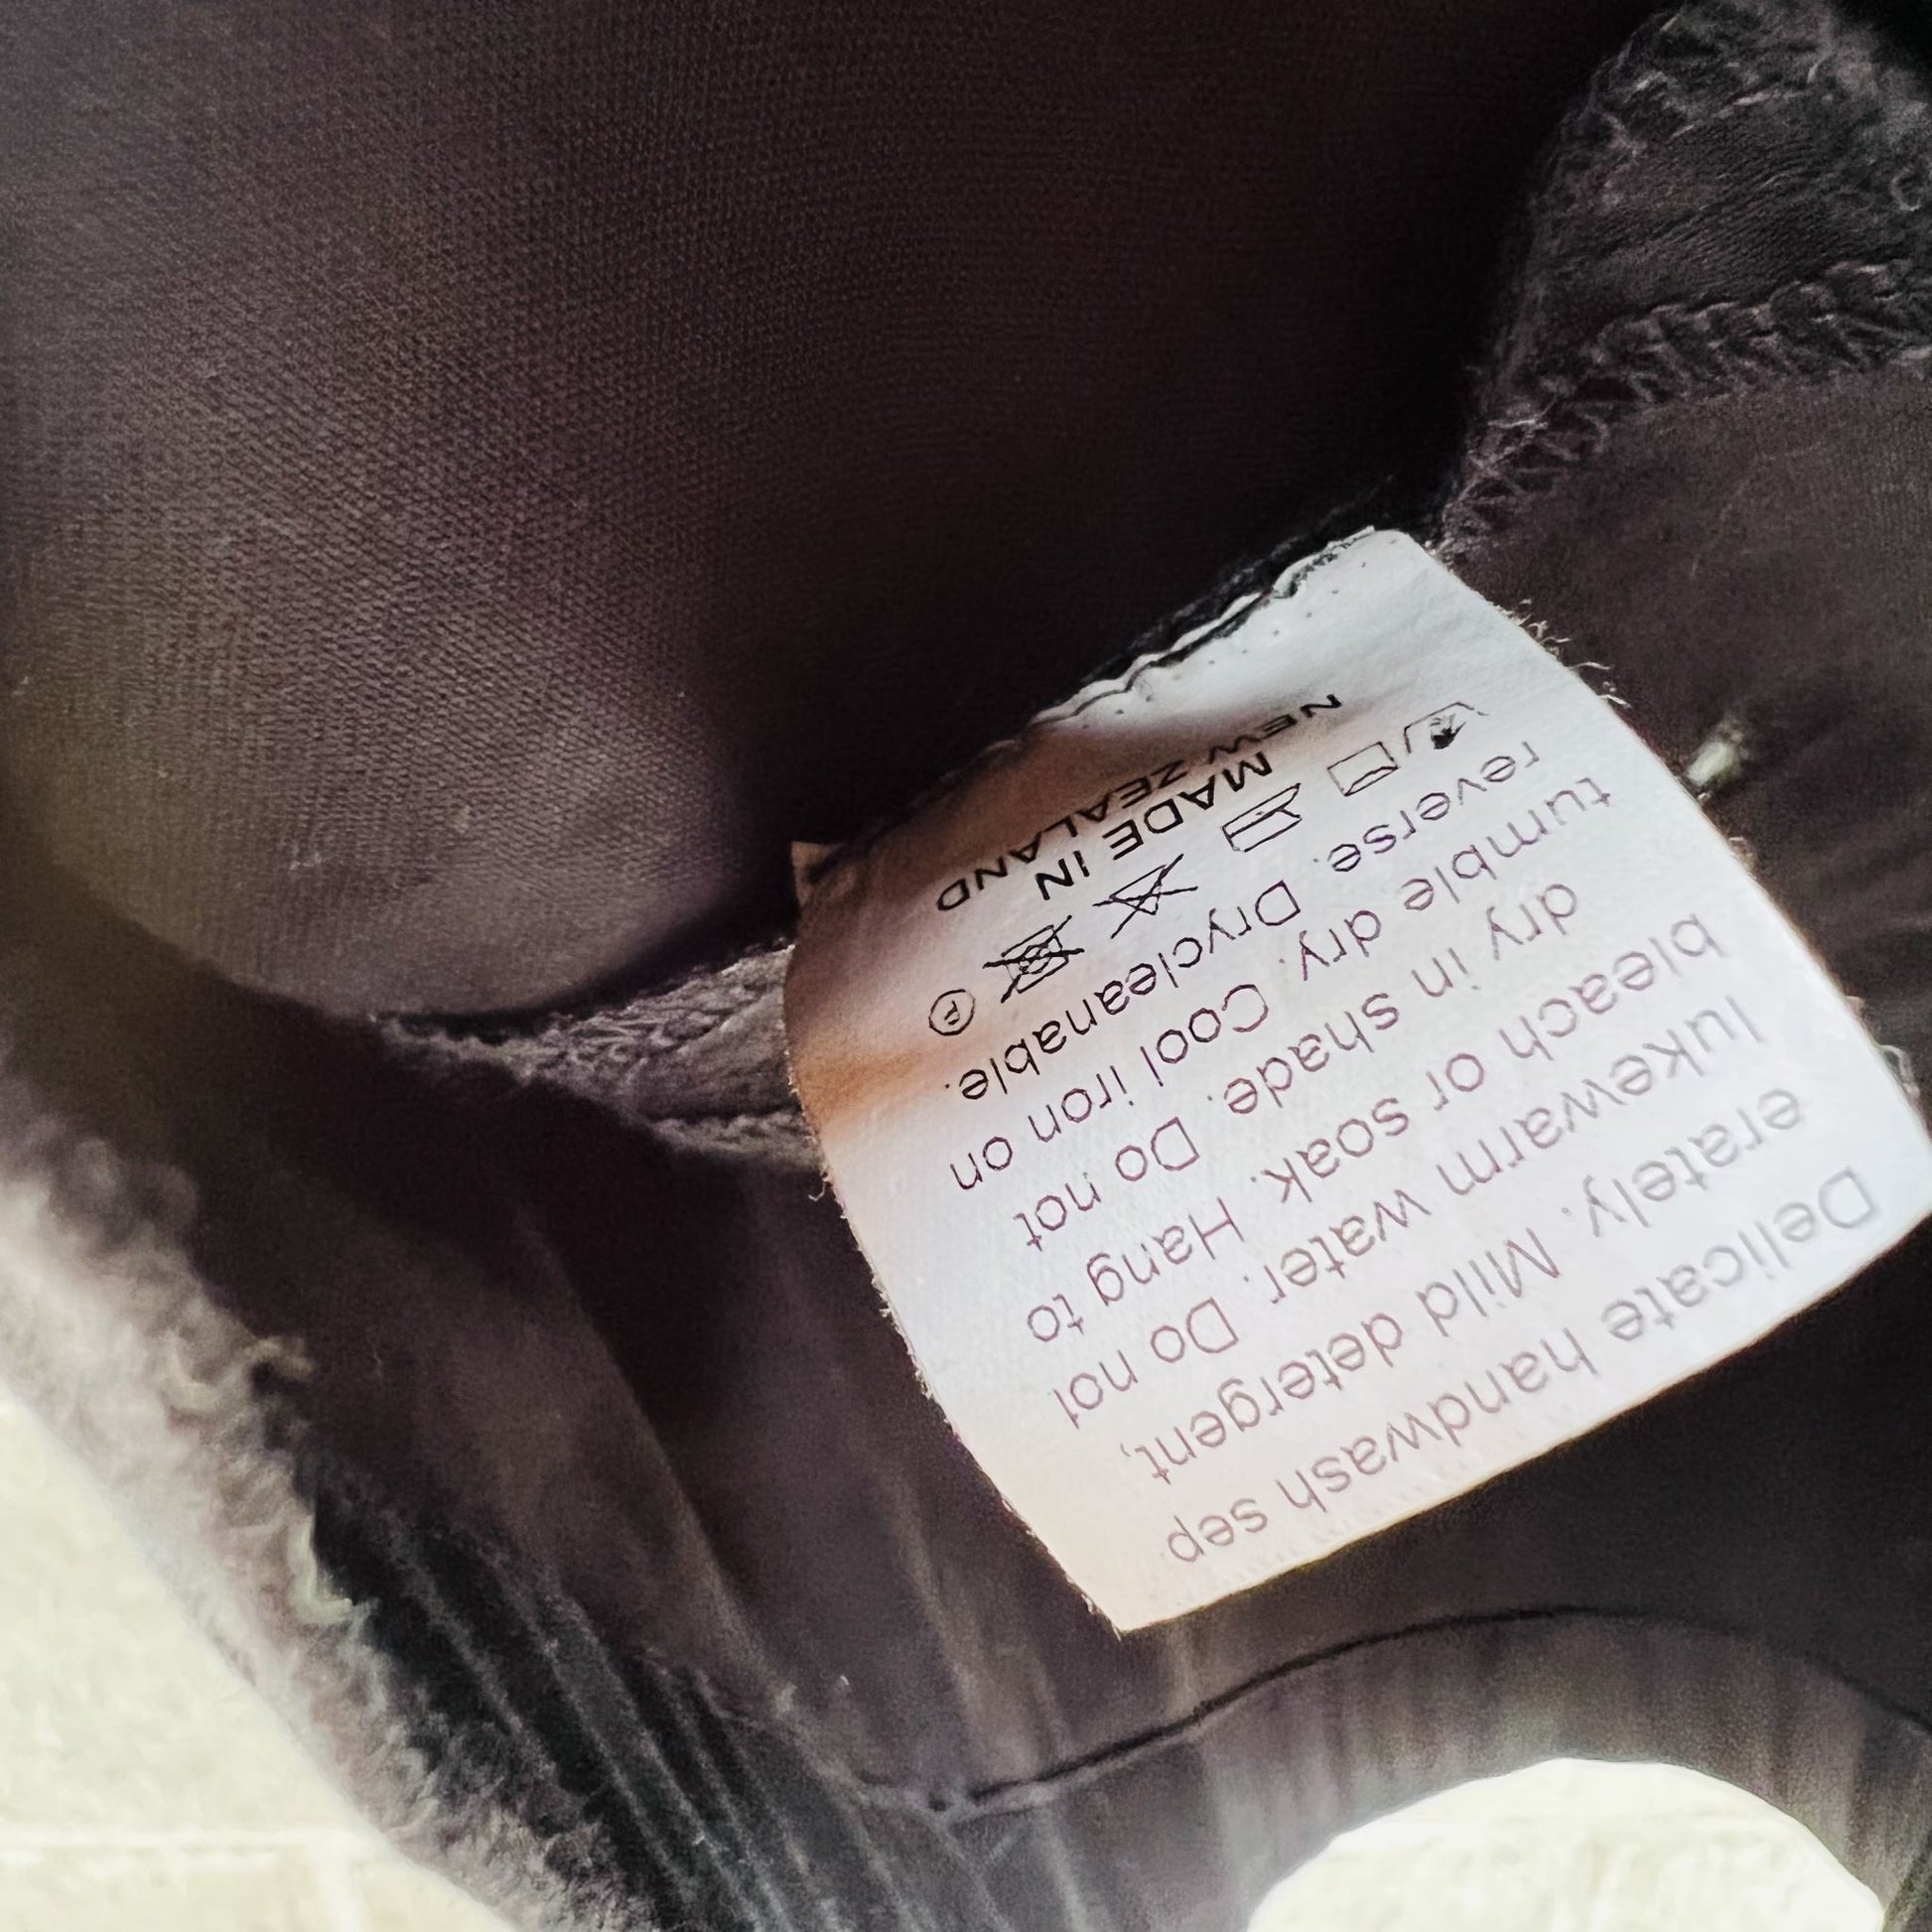 Delicate handwash sep
erately. Mild detergent,
lukewarm water. Do not
bleach or soak. Hang to
dry in shade. Do not
tumble dry. Cool iron on
reverse. Drycleanable.
F
MADE IN
NEW ZEALAND